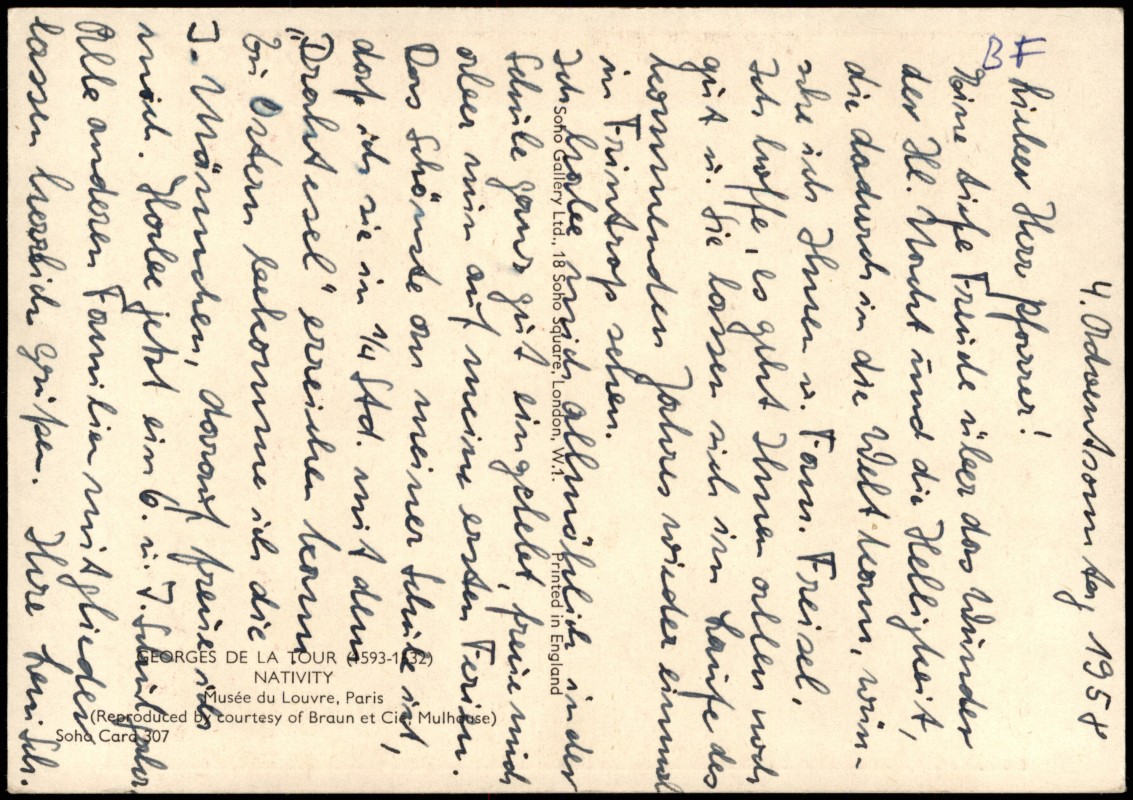 4. Adventsonntag 1958
B#
Lieber Herr Pfarrer!
Eine tiefe Freude über das Wunder
der Hl. Nacht und die Helligkeit,
die dadurch in die Welt kam, wün-
sche ich Ihnen u. Fam. Freisel.
Ich hoffe, es geht Ihnen allen noch
gut u. Sie lassen sich im Laufe des
kommenden Jahres wieder einmal
in Frintrop sehen.
Ich habe mich allmählich in der
Schule ganz gut eingelebt, freue mich
aber nun auf meine ersten Ferien.
Das Schönste an meiner Schule ist,
daß ich sie in 1/4 Std. mit dem
"Drahtesel" erreichen kann
Zu Ostern bekomme ich die
I. Männchen, darauf freue ich
mich. Habe jetzt ein 6. u. 7. Schuljahr.
Alle anderen Familienmitglieder
lassen herzlich grüßen. Ihre
Soho Gallery Ltd., 18 Soho Square, London, W.1. Printed in England
GEORGES DE LA TOUR (1593-1652)
NATIVITY
Musée du Louvre, Paris
(Reproduced by courtesy of Braun et Cie, Mulhouse)
Soho Card 307